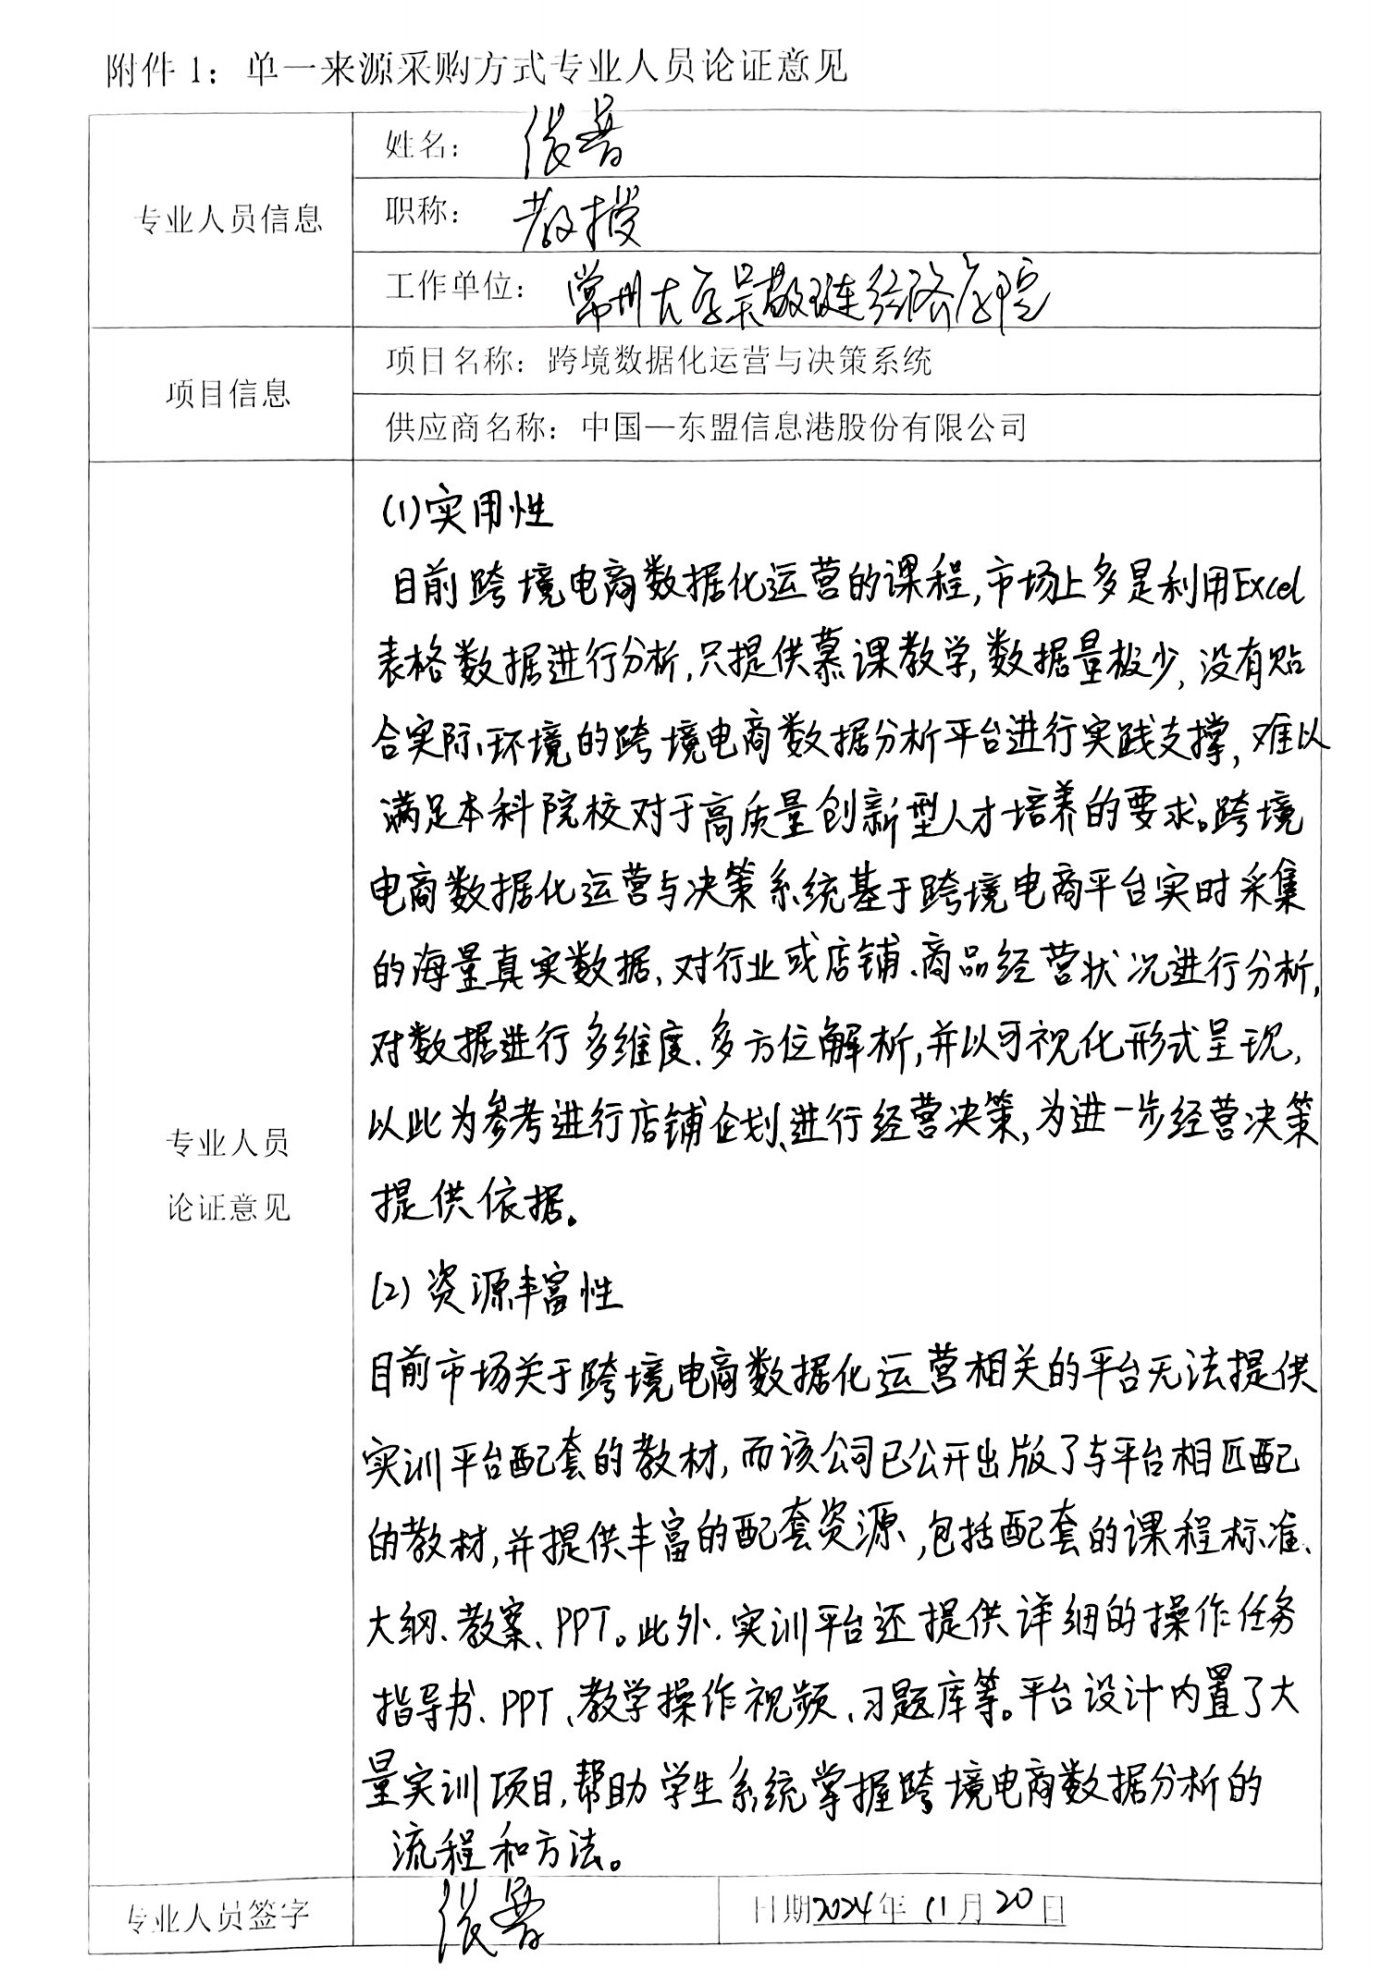 附件 1：单一来源采购方式专业人员论证意见
专业人员信息
姓名：张普
职称：教授
工作单位：常州大学吴敬琏经济学院
项目信息
项目名称：跨境数据化运营与决策系统
供应商名称：中国—东盟信息港股份有限公司
专业人员
论证意见
(1)实用性
目前跨境电商数据化运营的课程,市场上多是利用Excel
表格数据进行分析,只提供慕课教学,数据量极少,没有贴
合实际环境的跨境电商数据分析平台进行实践支撑,难以
满足本科院校对于高质量创新型人才培养的要求。跨境
电商数据化运营与决策系统基于跨境电商平台实时采集
的海量真实数据,对行业或店铺、商品经营状况进行分析,
对数据进行多维度、多方位解析,并以可视化形式呈现,
以此为参考进行店铺企划、进行经营决策,为进一步经营决策
提供依据。
(2)资源丰富性
目前市场关于跨境电商数据化运营相关的平台无法提供
实训平台配套的教材,而该公司已公开出版了与平台相匹配
的教材,并提供丰富的配套资源,包括配套的课程标准、
大纲、教案、PPT。此外,实训平台还提供详细的操作任务
指导书、PPT、教学操作视频、习题库等。平台设计内置了大
量实训项目,帮助学生系统掌握跨境电商数据分析的
流程和方法。
专业人员签字
张普
日期2024年11月20日